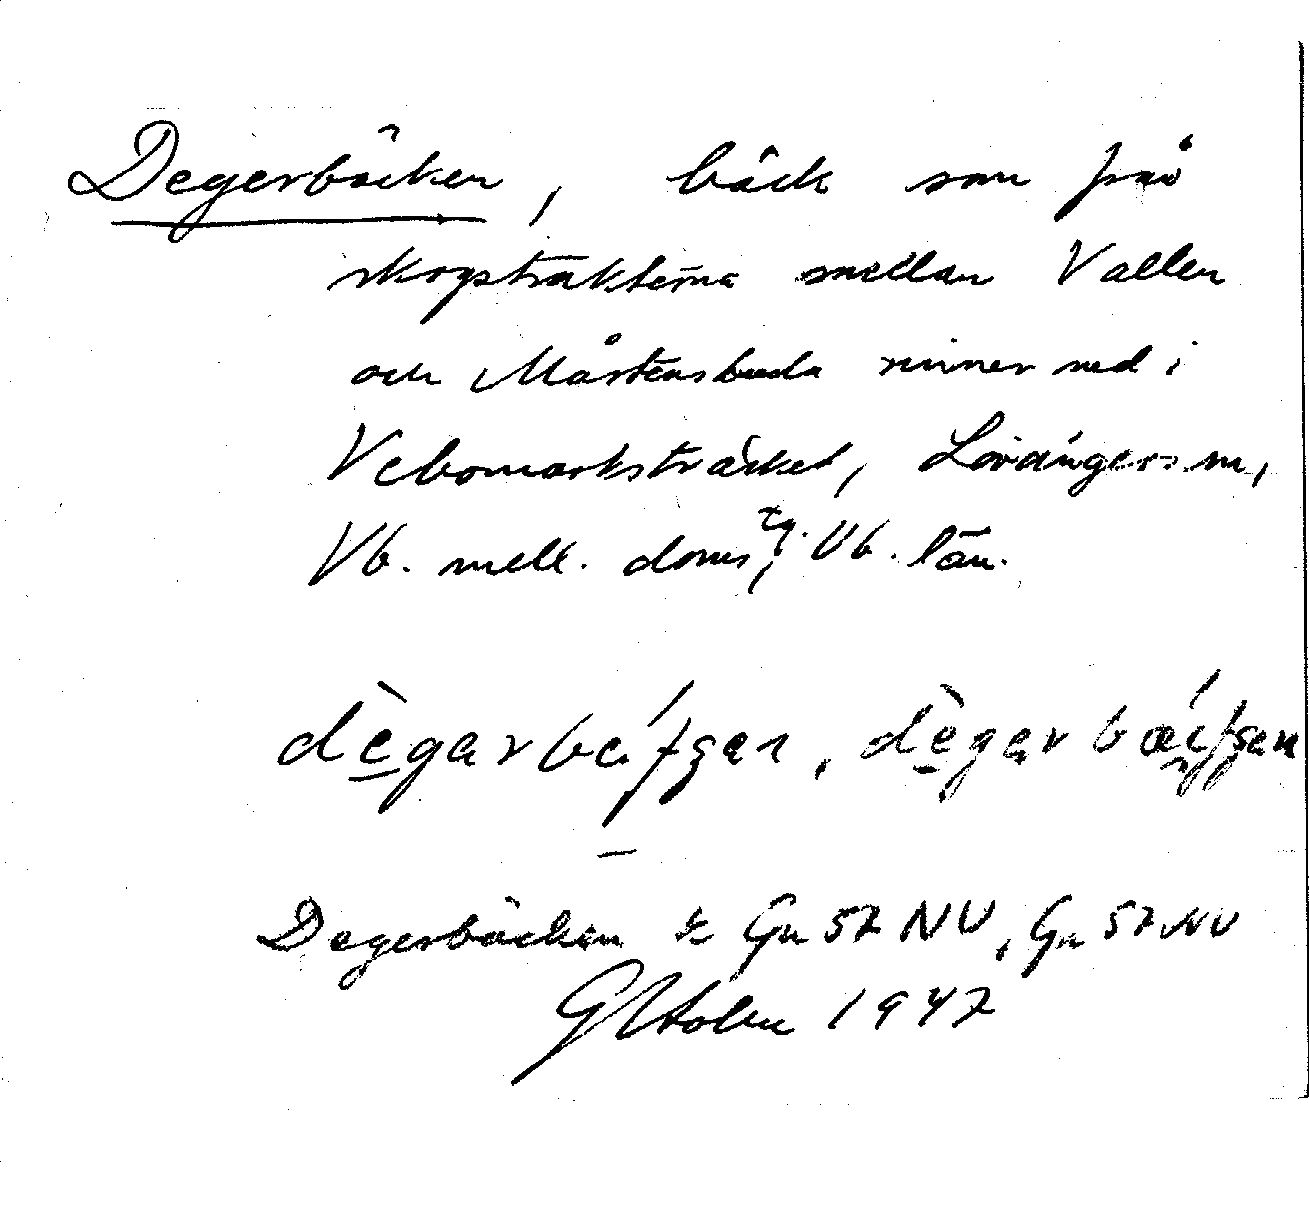 Degerbäcken, bäck som från
skogstrakterna mellan Vallen
och Mårtensboda rinner ned i
Vebomarksträsket, Lövångers sn,
Vb. mell. doms tg. Vb. län.
Degerbäcken Gn 57 NV, Gn 57 NV
1947